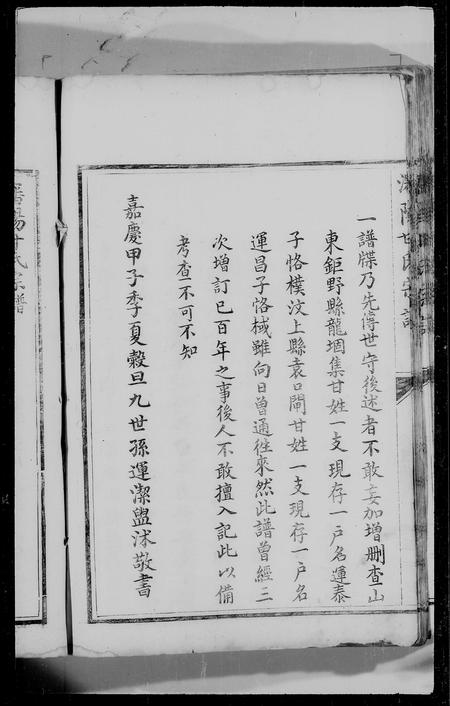 一譜牒乃先傳世守後述者不敢妄加增刪查山
東鉅野縣龍堌集甘姓一支現存一户名運泰
子恪樸汶上縣袁口閘甘姓一支現存一户名
運昌子恪棫雖向日曾通徃來然此譜曾經三
次增訂已百年之事後人不敢擅入記此以備
考查不可不知
嘉慶甲子季夏穀旦九世孫運潔盥沐敬書
瀋陽甘氏宗譜